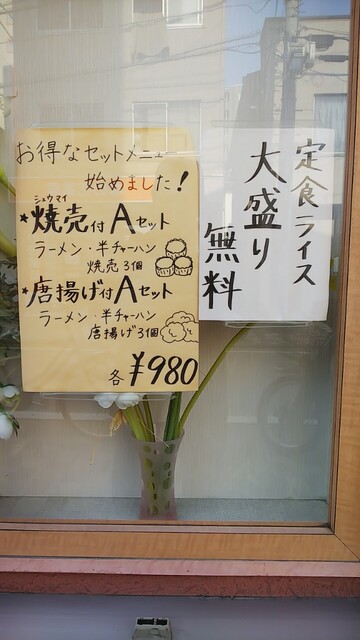 お得なセットメニュー
始めました！
シュウマイ
★焼売付Aセット
ラーメン・半チャーハン
焼売3個
★唐揚げ付Aセット
ラーメン・半チャーハン
唐揚げ3個
各¥980
定食ライス
大盛り
無料